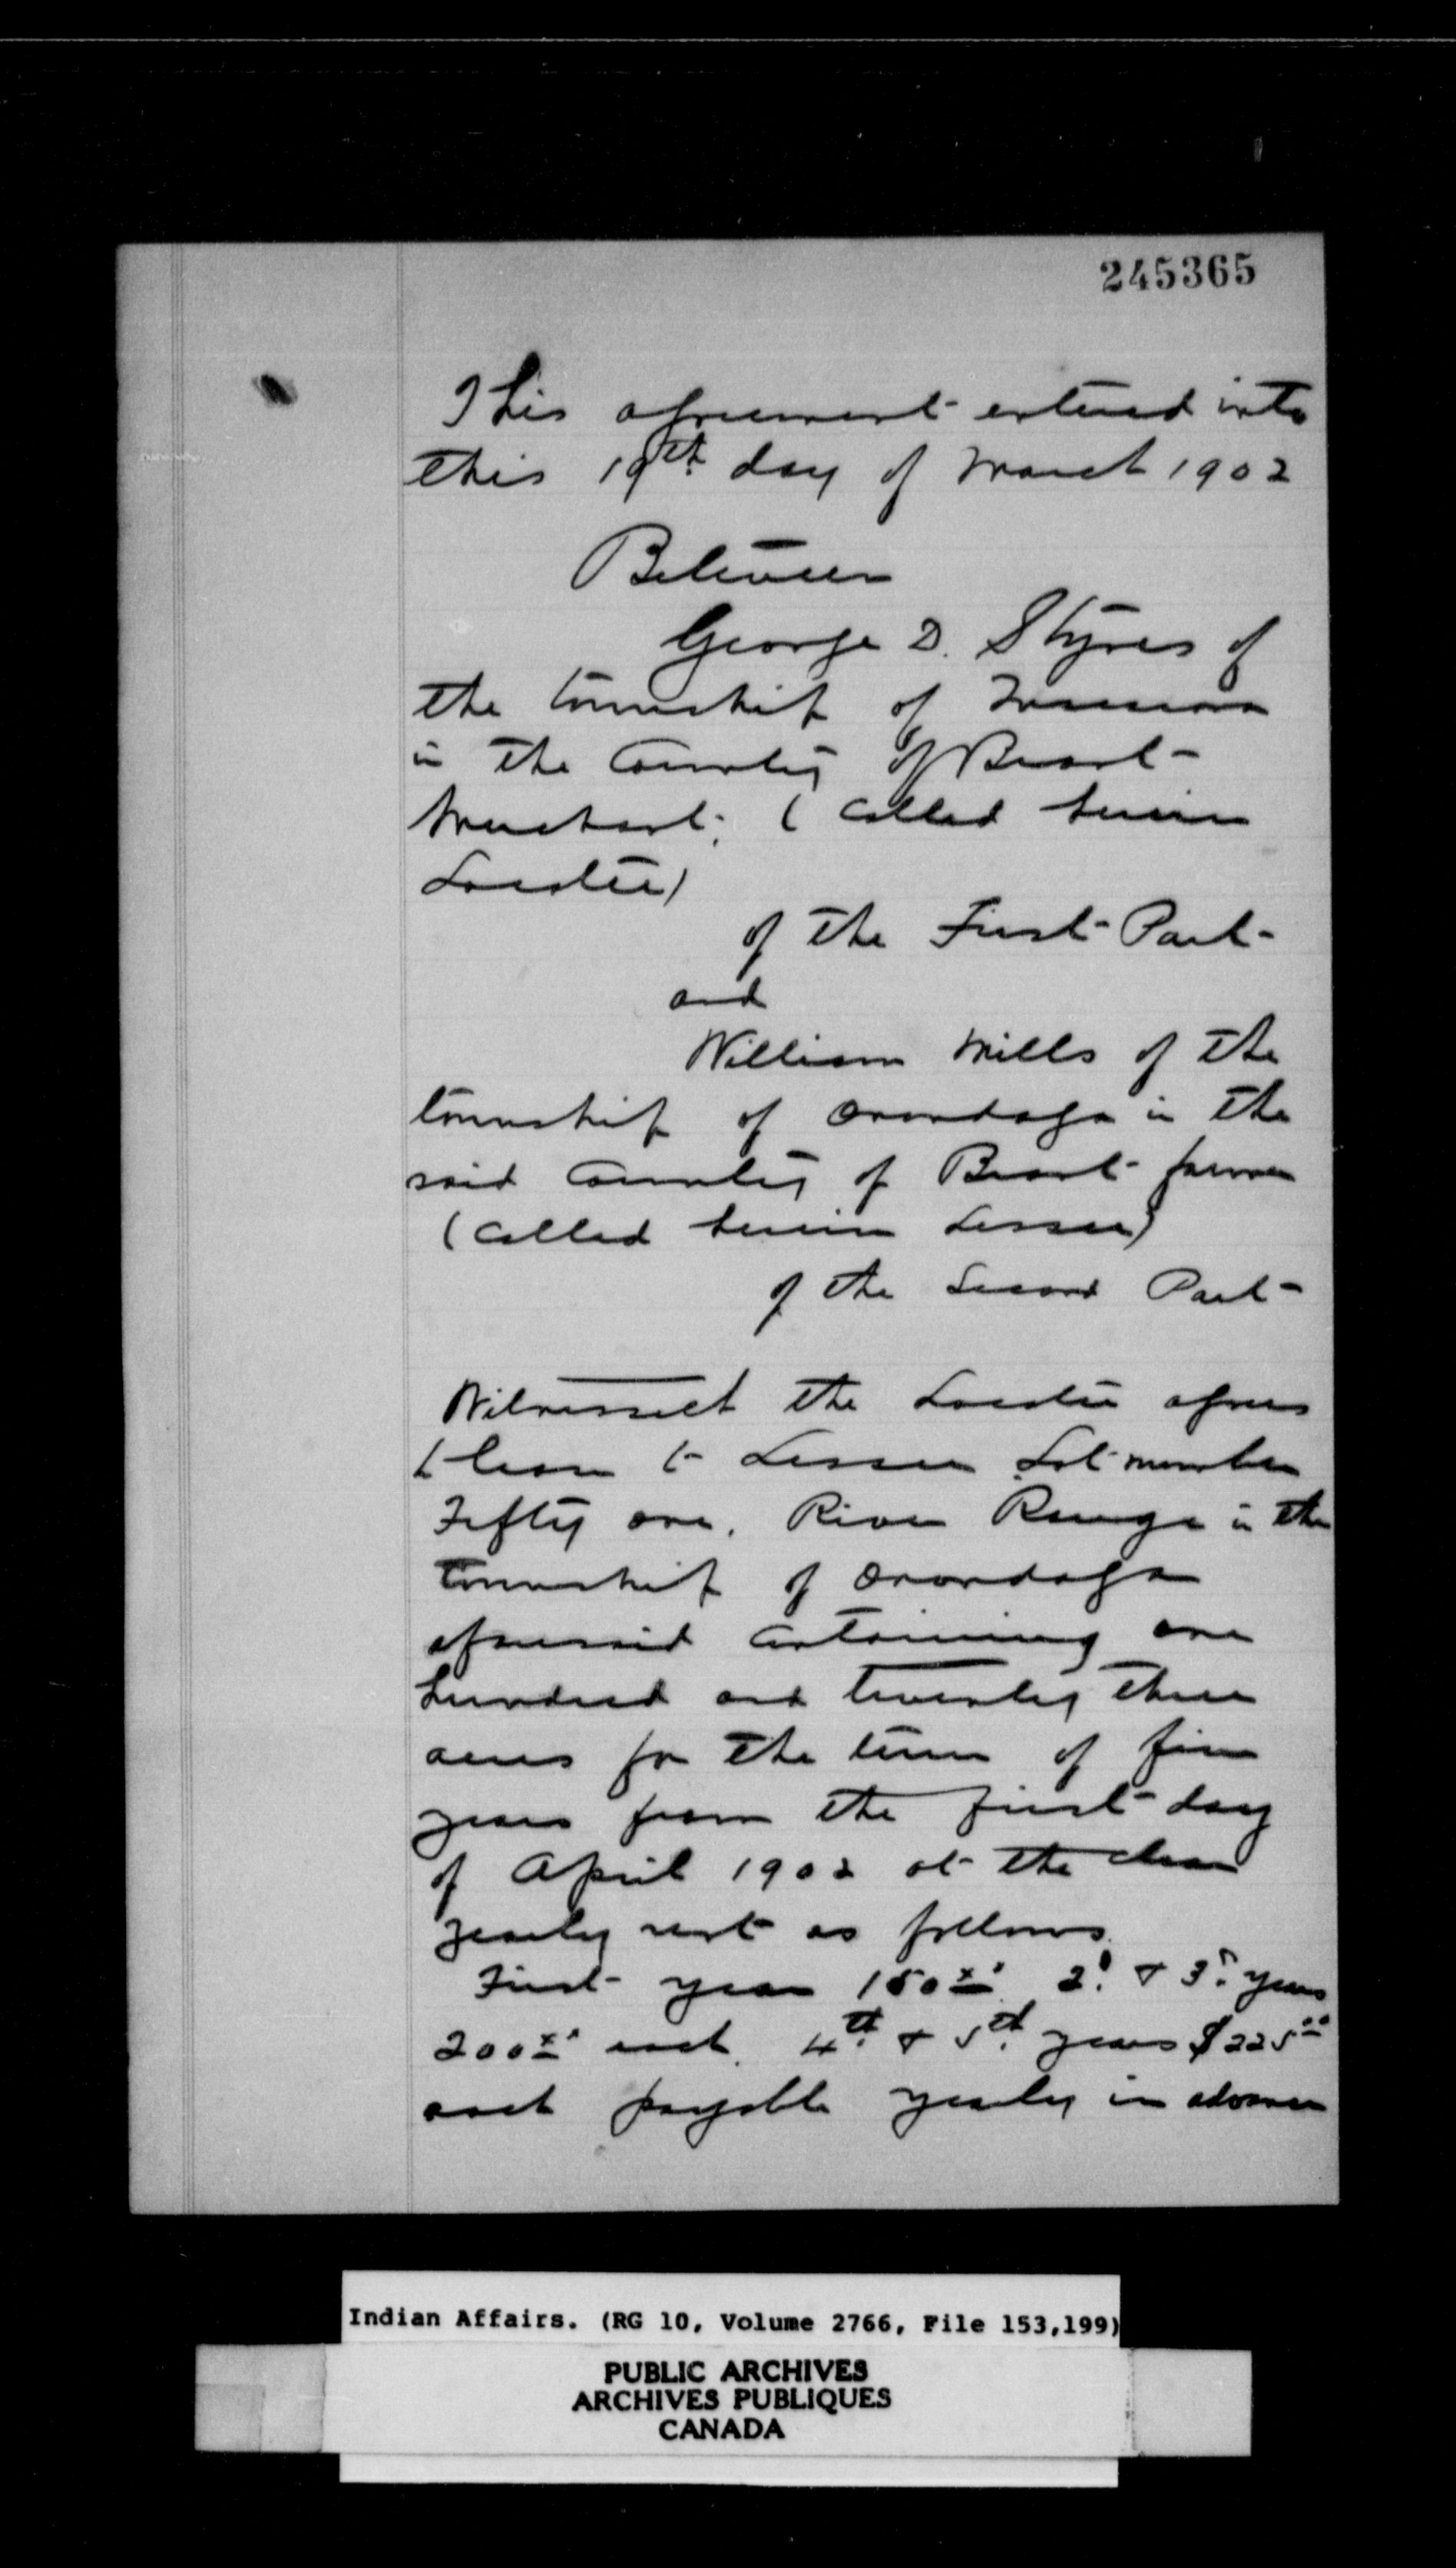 245365
This agreement entered into
this 19th day of March 1902
Between
George D. Styres of
the township of Tuscarora
in the County of Brant
Merchant; (called herein
Locatee)
of the First Part
and
William Mills of the
township of Onondaga in the
said County of Brant farmer
(called herein Lessee)
of the Second Part
Witnesseth the Locatee agrees
to lease to Lessee Lot number
Fifty one, River Range in the
township of Onondaga
aforesaid containing one
hundred and twenty three
acres for the term of five
years from the first day
of April 1902 at the clear
yearly rent as follows.
First year 150 xx 2d & 3d years
200 xx each. 4th & 5th years $225 00
each payable yearly in advance
Indian Affairs. (RG 10, Volume 2766, File 153,199)
PUBLIC ARCHIVES
ARCHIVES PUBLIQUES
CANADA